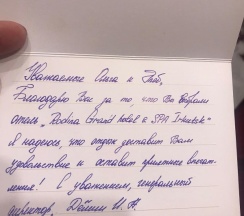 Уважаемые Ольга и Глеб,
Благодарю Вас за то, что Вы выбрали
отель „Rodina Grand hotel & SPA
Я надеюсь, что отдых доставит Вам
удовольствие и оставит приятные впечат-
ления! С уважением, генеральный
директор,